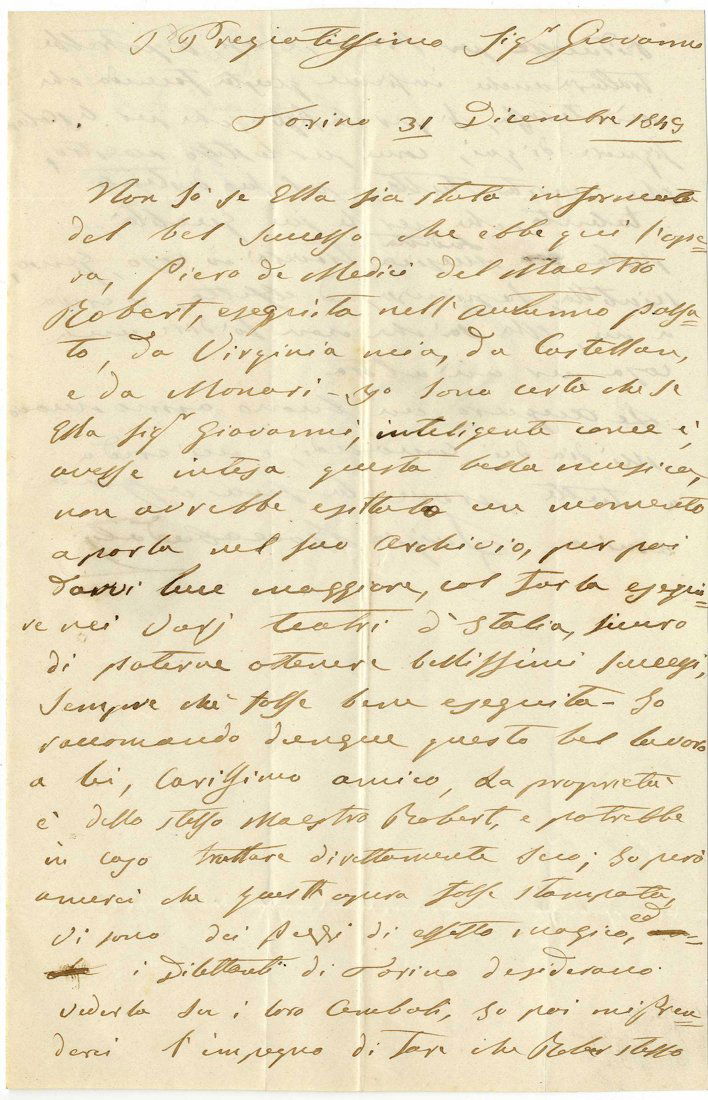 Pregiatissimo Sigr Giovanni
Torino 31 Dicembre 1849
Non sò se Ella sia stata informata
del bel successo che ebbe qui l'ope-
ra, Piero de Medici del Maestro
Robert, eseguita nell'autunno passa-
to, da Virginia mia, da Castellan,
e da Monari - Io sono certa che se
Ella Sigr Giovanni, inteligente come è,
avesse intesa questa bella musica,
non avrebbe esitato un momento
a porla nel suo Archivio, per poi
darvi luce maggiore, col farla esegui-
re nei varj teatri d'Italia, sicuro
di poterne ottenere bellissimi successi,
sempre chè fosse bene eseguita - Io
raccomando dunque questo bel lavoro
a lei, Carissimo amico, La proprietà
è dello stesso Maestro Robert, e potrebbe
in caso trattare direttamente seco; Io però
amerei che quest'opera fosse stampata,
vi sono dei pezzi di effetto magico, ed
i Dilettanti di Torino desiderano
vederla su i loro Cembali, Io poi mi pren-
derei l'impegno di fare che Robert stesso